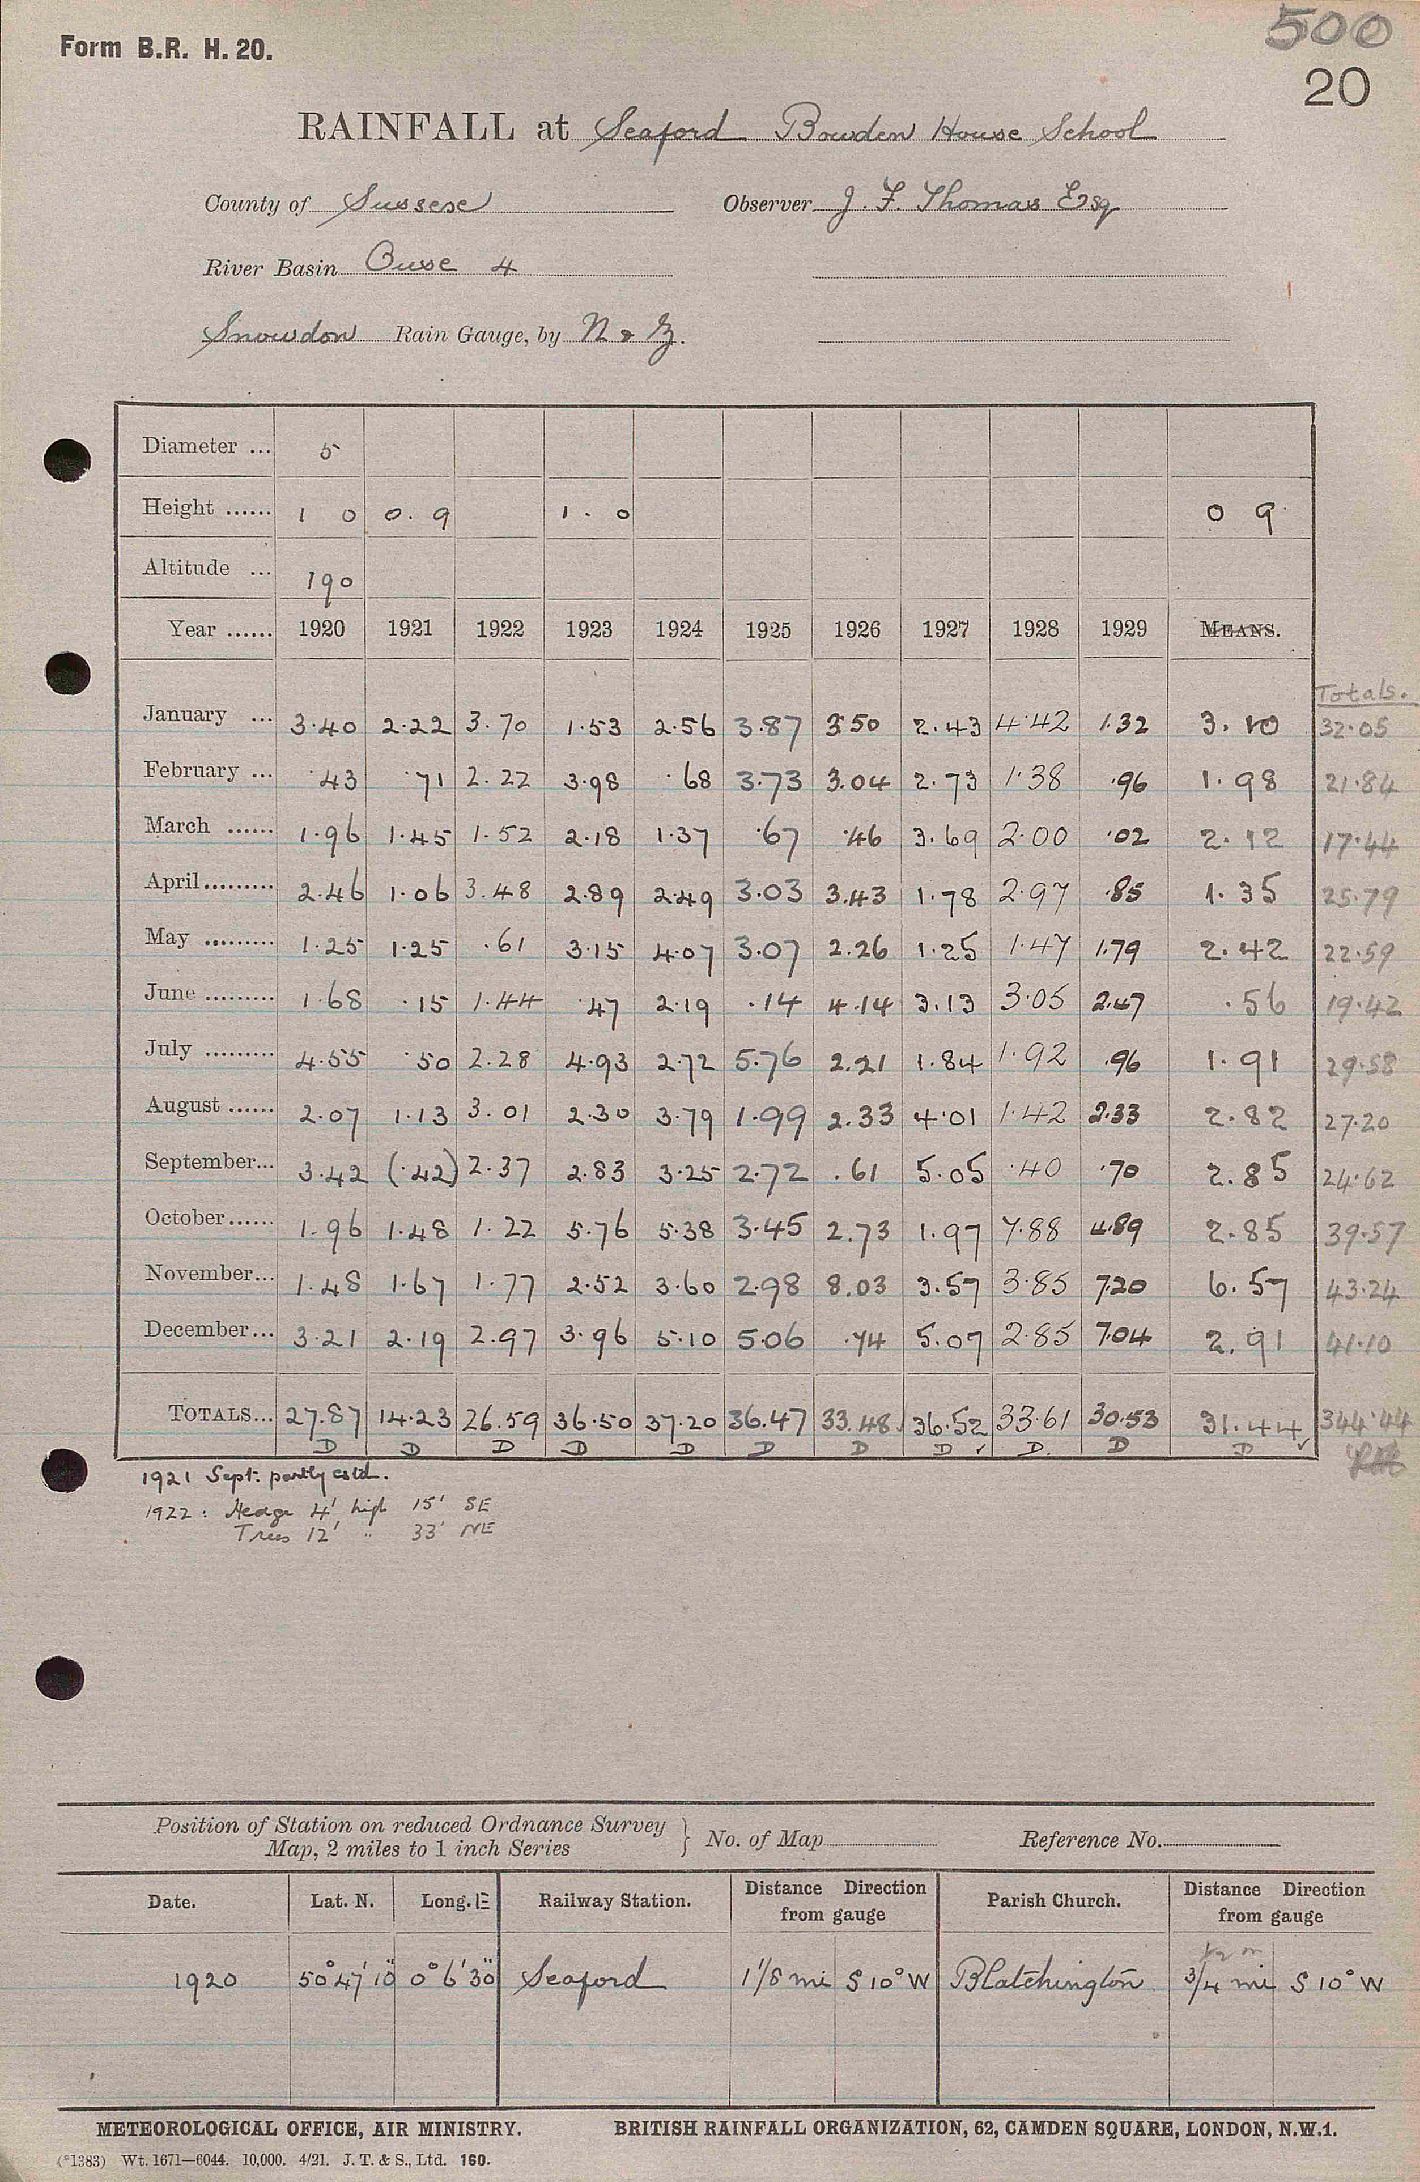 500
Form B.R. H. 20.
20
RAINFALL at Seaford Bowden House School
County of Sussex Observer J. F. Thomas Esq
River Basin Ouse 4
Snowdon Rain Gauge, by N & Z.
Diameter ... 5
Height ...... 1 0 0. 9 1. 0 0 9
Altitude ... 190
Year ...... 1920 1921 1922 1923 1924 1925 1926 1927 1928 1929 MEANS.
Totals.
January ... 3.40 2.22 3.70 1.53 2.56 3.87 3.50 2.43 4.42 1.32 3.10 32.05
February ... .43 .71 2.22 3.98 .68 3.73 3.04 2.73 1.38 .96 1.98 21.84
March ...... 1.96 1.45 1.52 2.18 1.37 .67 .46 3.69 2.00 .02 2.12 17.44
April ......... 2.46 1.06 3.48 2.89 2.49 3.03 3.43 1.78 2.97 .85 1.35 25.79
May ......... 1.25 1.25 .61 3.15 4.07 3.07 2.26 1.25 1.47 1.79 2.42 22.59
June ......... 1.68 .15 1.44 .47 2.19 .14 4.14 3.13 3.05 2.47 .56 19.42
July ......... 4.55 .50 2.28 4.93 2.72 5.76 2.21 1.84 1.92 .96 1.91 29.58
August ...... 2.07 1.13 3.01 2.30 3.79 1.99 2.33 4.01 1.42 2.33 2.82 27.20
September... 3.42 (.42) 2.37 2.83 3.25 2.72 .61 5.05 .40 .70 2.85 24.62
October...... 1.96 1.48 1.22 5.76 5.38 3.45 2.73 1.97 7.88 4.89 2.85 39.57
November... 1.48 1.67 1.77 2.52 3.60 2.98 8.03 3.57 3.85 7.20 6.57 43.24
December... 3.21 2.19 2.97 3.96 5.10 5.06 .74 5.07 2.85 7.04 2.91 41.10
TOTALS... 27.87 14.23 26.59 36.50 37.20 36.47 33.48 36.52 33.61 30.53 31.44 344.44
D D D D D D D D ✓ D. D D ✓
1921 Sept: partly estd.
1922: Hedge 4' high 15' SE
Trees 12' " 33' NE
Position of Station on reduced Ordnance Survey Map, 2 miles to 1 inch Series } No. of Map Reference No.
Date. Lat. N. Long. E Railway Station. Distance Direction from gauge Parish Church. Distance Direction from gauge
1920 50° 47' 10" 0° 6' 30" Seaford 1 1/8 mi S 10° W Blatchington 3/4 mi S 10° W
METEOROLOGICAL OFFICE, AIR MINISTRY. BRITISH RAINFALL ORGANIZATION, 62, CAMDEN SQUARE, LONDON, N.W.1.
(*1383) Wt. 1671—6044. 10,000. 4/21. J. T. & S., Ltd. 160.